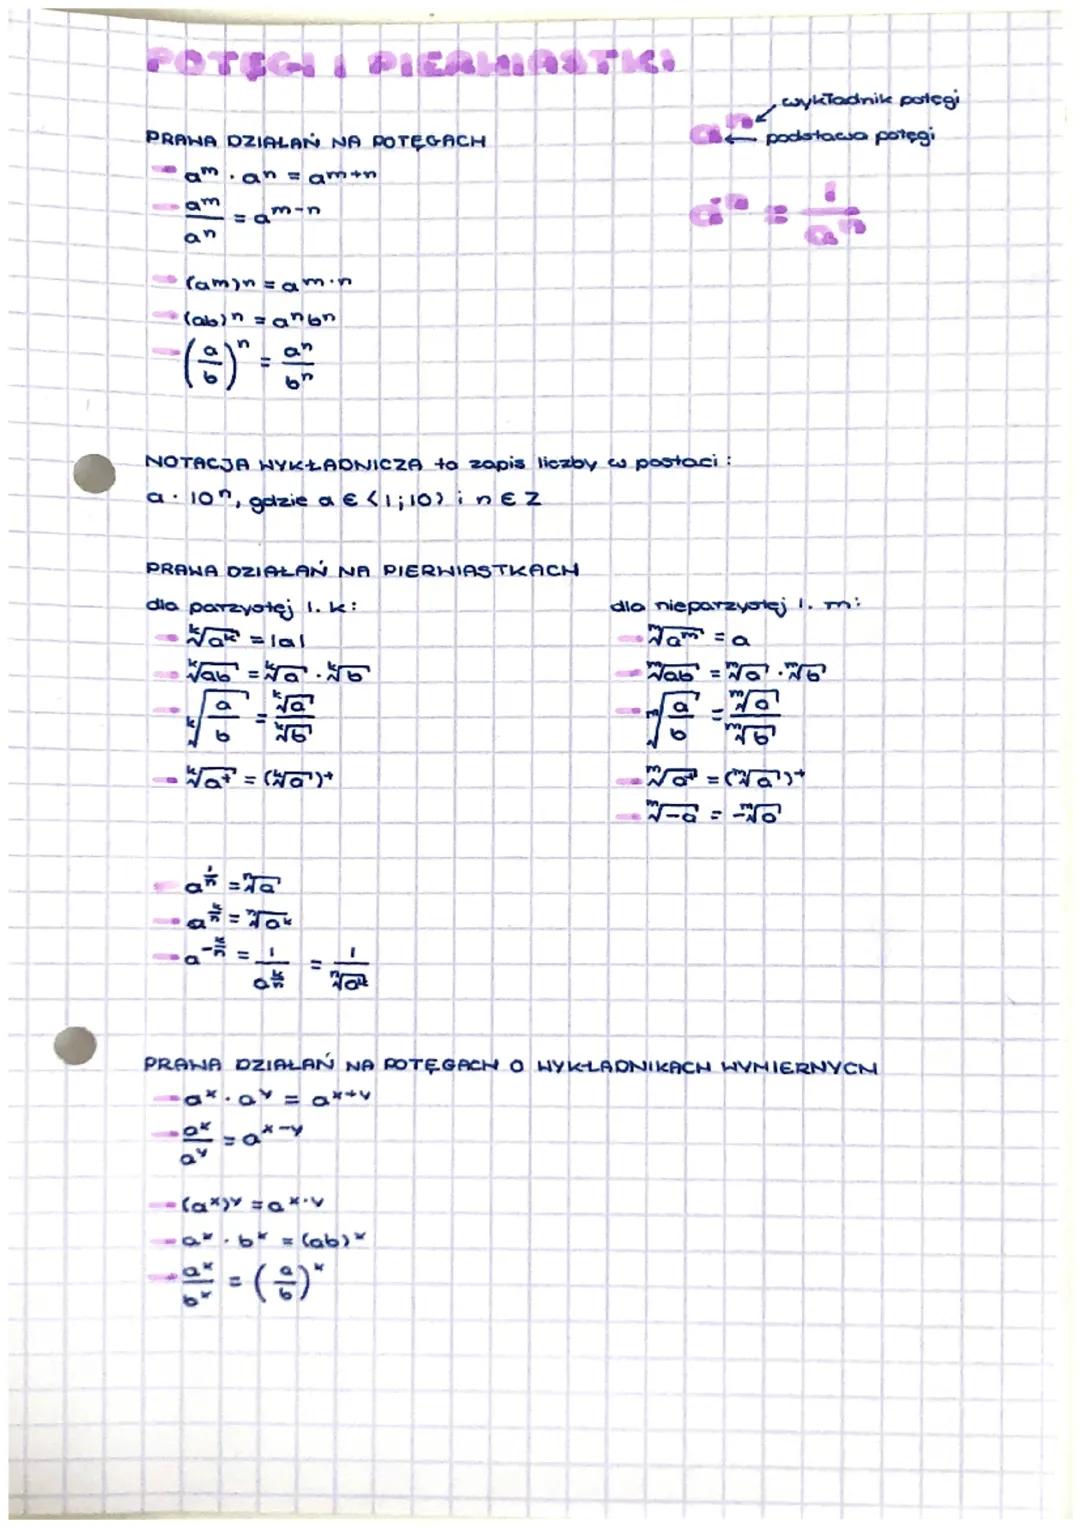 POTĘGI I PIERWIASTKI
wykładnik potęgi
aⁿ podstawa potęgi
PRAWA DZIAŁAŃ NA POTĘGACH
a^m · a^n = a^(m+n)
a^m / a^n = a^(m-n)
a^-n = 1 / a^n
(a^m)^n = a^(m·n)
(ab)^n = a^n b^n
(a/b)^n = a^n / b^n
NOTACJA WYKŁADNICZA to zapis liczby w postaci:
a · 10^n, gdzie a ∈ <1;10) i n ∈ Z
PRAWA DZIAŁAŃ NA PIERWIASTKACH
dla parzystej l. k:
ᵏ√(a^k) = |a|
ᵏ√(ab) = ᵏ√a · ᵏ√b
ᵏ√(a/b) = ᵏ√a / ᵏ√b
ᵏ√(a^t) = (ᵏ√a)^t
dla nieparzystej l. m:
ᵐ√(a^m) = a
ᵐ√(ab) = ᵐ√a · ᵐ√b
ᵐ√(a/b) = ᵐ√a / ᵐ√b
ᵐ√(a^t) = (ᵐ√a)^t
ᵐ√(-a) = -ᵐ√a
a^(1/n) = ⁿ√a
a^(k/n) = ⁿ√(a^k)
a^(-k/n) = 1 / a^(k/n) = 1 / ⁿ√(a^k)
PRAWA DZIAŁAŃ NA POTĘGACH O WYKŁADNIKACH WYMIERNYCH
a^x · a^y = a^(x+y)
a^x / a^y = a^(x-y)
(a^x)^y = a^(x·y)
a^x · b^x = (ab)^x
a^x / b^x = (a/b)^x